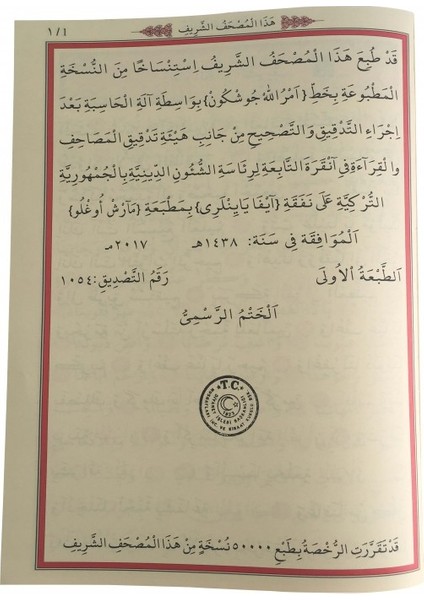 هَذَا الْمُصْحَفُ الشَّرِيفُ
١/١
قَدْ طُبِعَ هَذَا الْمُصْحَفُ الشَّرِيفُ اِسْتِنْسَاخًا مِنَ النُّسْخَةِ
الْمَطْبُوعَةِ بِخَطِّ {اَمْرُ اللهْ جُوشْكُونْ} بِوَاسِطَةِ آلَةِ الْحَاسِبَةِ بَعْدَ
اِجْرَاءِ التَّدْقِيقِ وَالتَّصْحِيحِ مِنْ جَانِبِ هَيْئَةِ تَدْقِيقِ الْمَصَاحِفِ
وَالْقِرَاءَةِ فِي اَنْقَرَةَ التَّابِعَةِ لِرِئَاسَةِ الشُّئُونِ الدِّينِيَّةِ بِالْجُمْهُورِيَّةِ
التُّرْكِيَّةِ عَلَى نَفَقَةِ {اَيْفَا يَايِنْلَرِى} بِمَطْبَعَةِ {مَارْشْ أُوغْلُو}
اَلْمُوَافَقَةِ فِى سَنَةِ: ١٤٣٨هـ ٢٠١٧مـ
اَلطَّبْعَةُ اْلأُولَى رَقَمُ التَّصْدِيقِ: ١٠٥٤
اَلْخَتْمُ الرَّسْمِىُّ
T.C.
قَدْ تَقَرَّرَتِ الرُّخْصَةُ بِطَبْعِ ٥٠٠٠٠ نُسْخَةٍ مِنْ هَذَا الْمُصْحَفِ الشَّرِيفِ